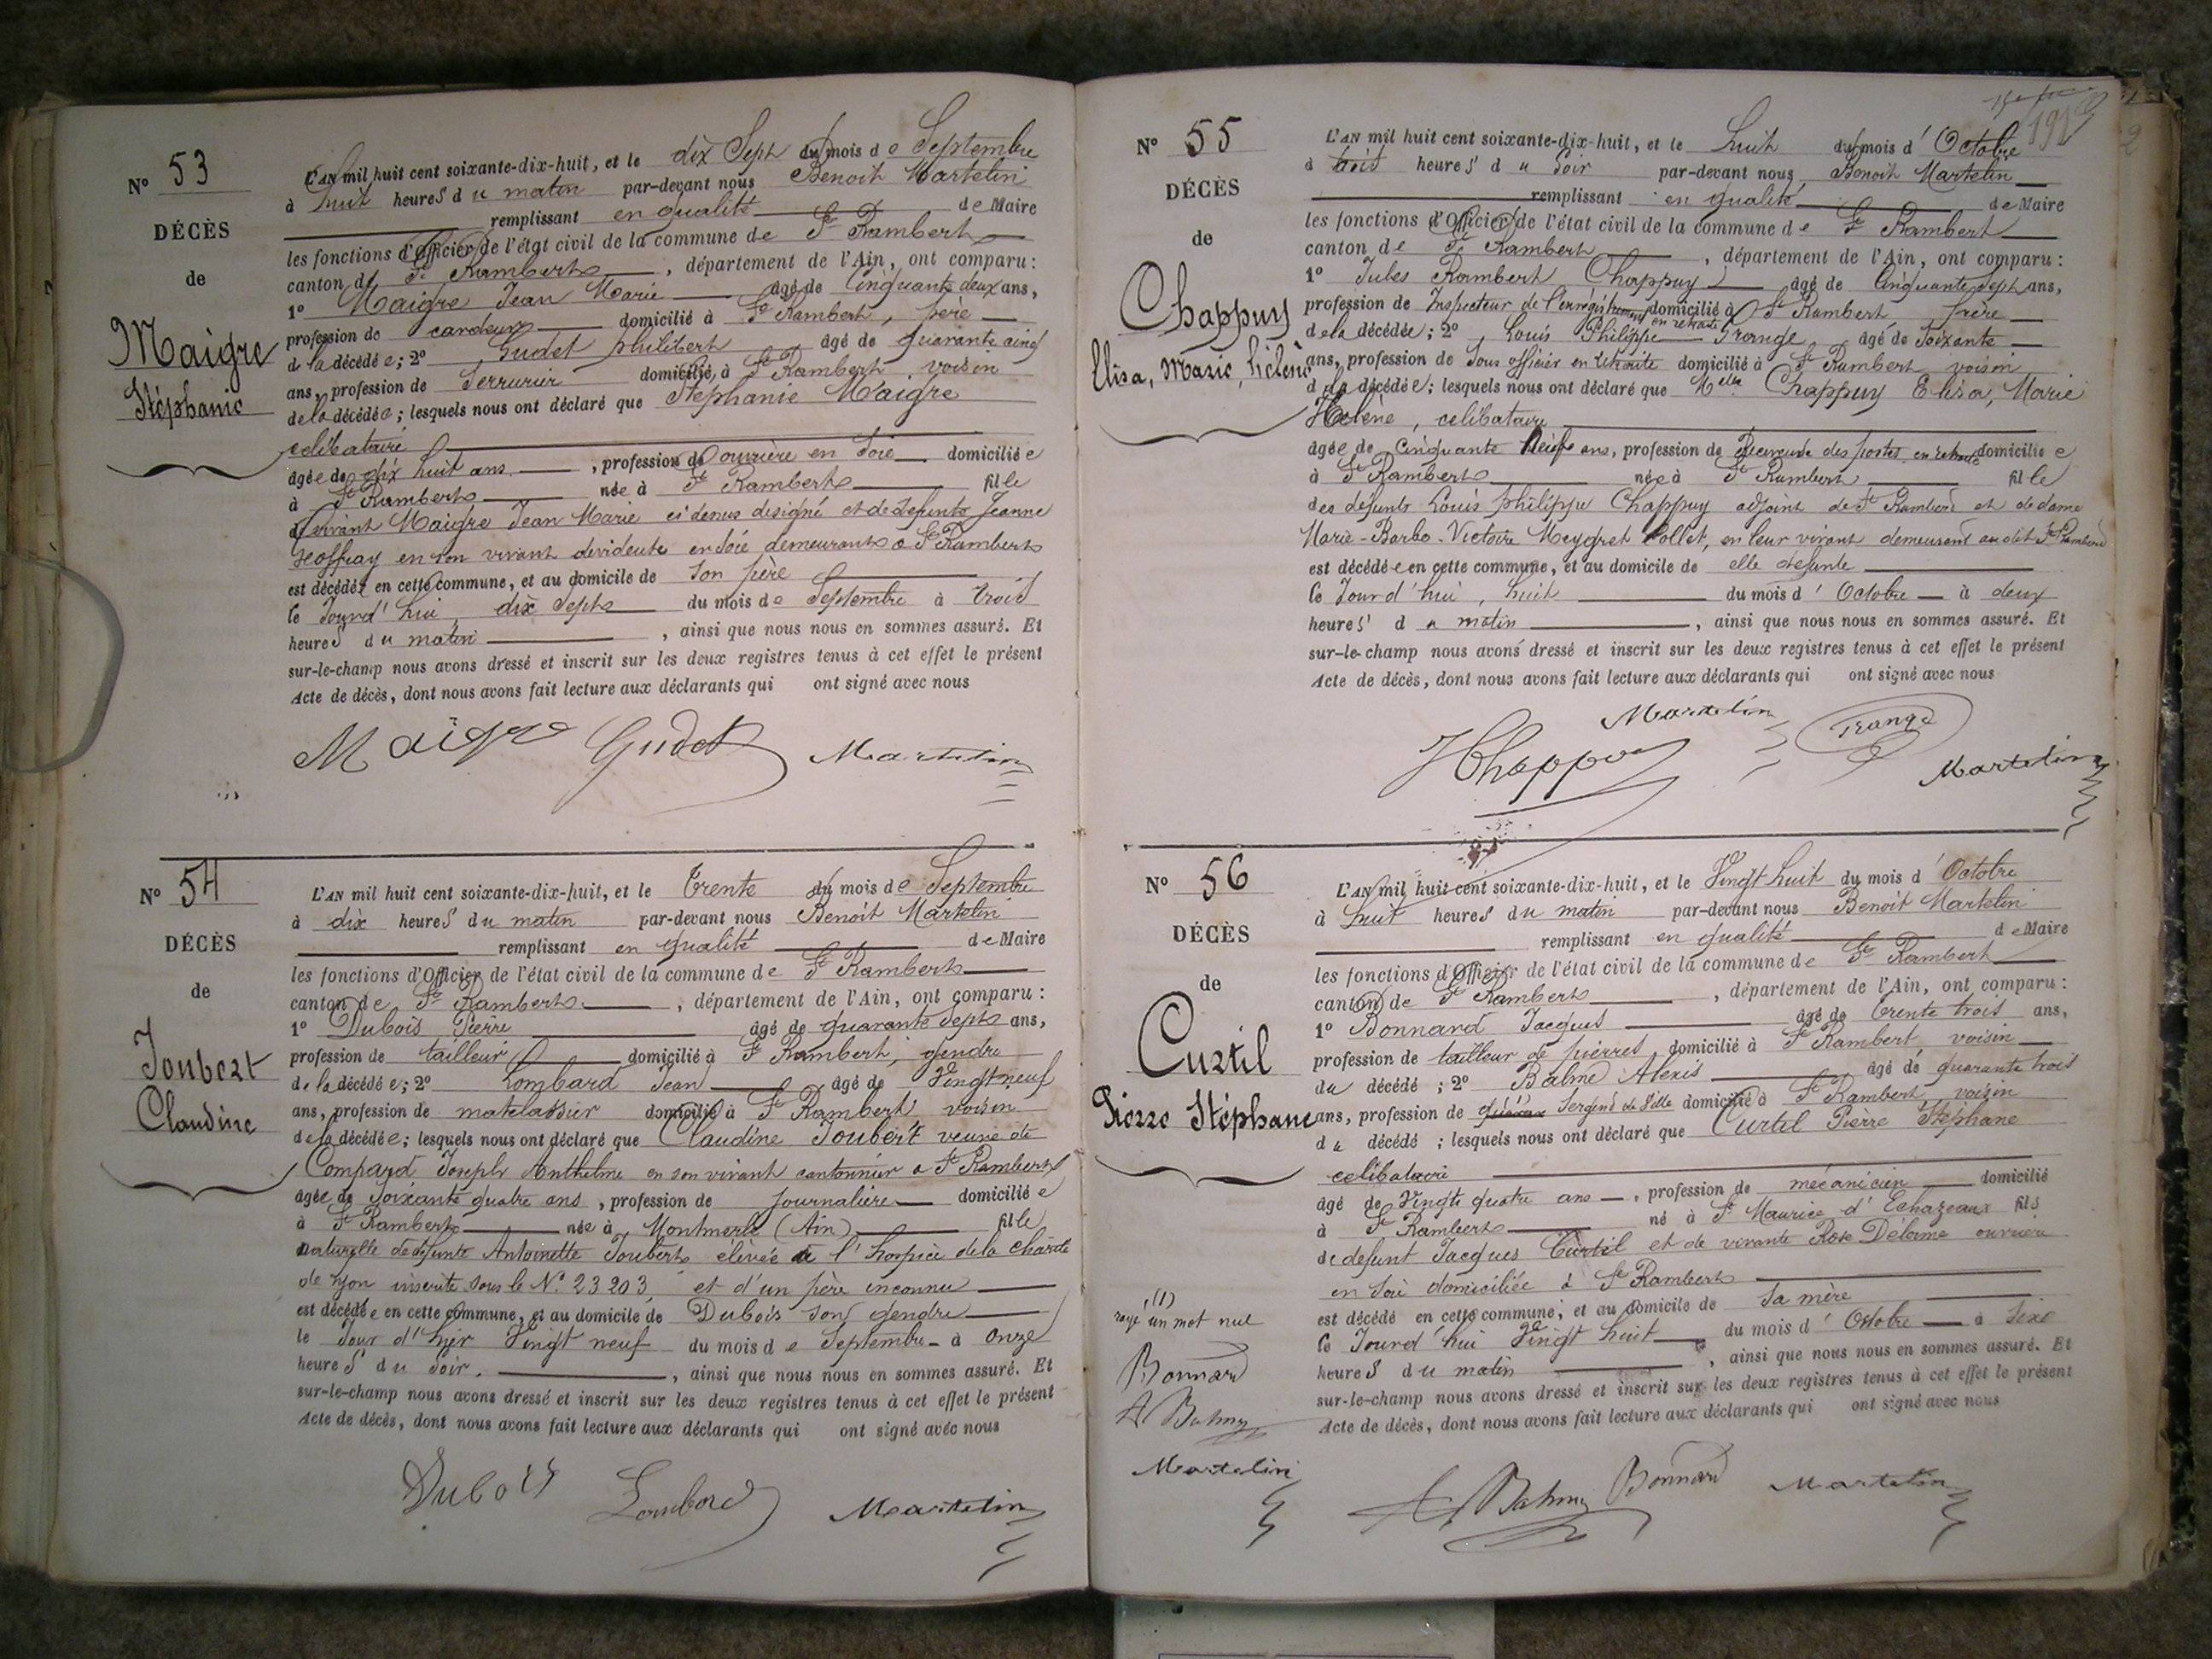 N° 53
DÉCÈS
de
Maigre
Stéphanie
L'AN mil huit cent soixante-dix-huit, et le dix Sept du mois de Septembre
à huit heures du matin par-devant nous Benoit Martelin
remplissant en qualité de Maire
les fonctions d'Officier de l'état civil de la commune de St Rambert
canton de St Rambert, département de l'Ain, ont comparu :
1° Maigre Jean Marie âgé de Cinquante deux ans,
profession de cardeur domicilié à St Rambert, père
de la décédée; 2° Gudet philibert âgé de quarante cinq
ans, profession de Serrurier domicilié à St Rambert, voisin
de la décédée; lesquels nous ont déclaré que Stéphanie Maigre
celibataire
âgée de dix huit ans, profession de ouvrière en Soie domiciliée
à St Rambert née à St Rambert fille
de vivant Maigre Jean Marie ci desus désigné et de defunte Jeanne
Geoffray en son vivant devideuse en soie demeurant a St Rambert
est décédée en cette commune, et au domicile de son père
le Jourd'hui, dix Sept du mois de Septembre à trois
heures du matin, ainsi que nous nous en sommes assuré. Et
sur-le-champ nous avons dressé et inscrit sur les deux registres tenus à cet effet le présent
Acte de décès, dont nous avons fait lecture aux déclarants qui ont signé avec nous
Maigre Gudet Martelin
N° 54
DÉCÈS
de
Joubert
Claudine
L'AN mil huit cent soixante-dix-huit, et le Trente du mois de Septembre
à dix heures du matin par-devant nous Benoit Martelin
remplissant en qualité de Maire
les fonctions d'Officier de l'état civil de la commune de St Rambert
canton de St Rambert, département de l'Ain, ont comparu :
1° Dubois Pierre âgé de quarante Sept ans,
profession de tailleur domicilié à St Rambert, gendre
de la décédée; 2° Lombard Jean âgé de Vingt neuf
ans, profession de matelassier domicilié à St Rambert voisin
de la décédée; lesquels nous ont déclaré que Claudine Joubert veuve de
Compard Joseph Anthelme en son vivant cantonnier a St Rambert
âgée de soixante quatre ans, profession de Journalière domiciliée
à St Rambert née à Montmerle (Ain) fille
naturelle de defunte Antoinette Joubert élévée a l'hospice de la charité
de Lyon inscrite sous le N° 23203, et d'un père inconnu
est décédée en cette commune, et au domicile de Dubois son gendre
le Jour d'hier Vingt neuf du mois de Septembre à onze
heures du Soir, ainsi que nous nous en sommes assuré. Et
sur-le-champ nous avons dressé et inscrit sur les deux registres tenus à cet effet le présent
Acte de décès, dont nous avons fait lecture aux déclarants qui ont signé avec nous
Dubois Lombard Martelin
N° 55
DÉCÈS
de
Chappuy
Elisa, Marie, Hélène
L'AN mil huit cent soixante-dix-huit, et le huit du mois d'Octobre
à trois heures du Soir par-devant nous Benoit Martelin
remplissant en qualité de Maire
les fonctions d'Officier de l'état civil de la commune de St Rambert
canton de St Rambert, département de l'Ain, ont comparu :
1° Jules Rambert Chappuy âgé de Cinquante Sept ans,
profession de Inspecteur de l'enregistrement en retraite domicilié à St Rambert frère
de la décédée; 2° Louis Philippe Trange âgé de Soixante
ans, profession de Sous officier en retraite domicilié à St Rambert voisin
de la décédée; lesquels nous ont déclaré que Melle Chappuy Elisa, Marie
Hélène, celibataire
âgée de Cinquante Neuf ans, profession de Receveuse des postes en retraite domiciliée
à St Rambert née à St Rambert fille
des defunts Louis philippe Chappuy adjoint de St Rambert et de dame
Marie-Barbe-Victoire Meygret Collet, en leur vivant demeurant au dit St Rambert
est décédée en cette commune, et au domicile de elle defunte
le Jourd'hui, huit du mois d'Octobre à deux
heures du matin, ainsi que nous nous en sommes assuré. Et
sur-le-champ nous avons dressé et inscrit sur les deux registres tenus à cet effet le présent
Acte de décès, dont nous avons fait lecture aux déclarants qui ont signé avec nous
Martelin
JChappuy Trange Martelin
N° 56
DÉCÈS
de
Curtil
Pierre Stéphane
L'AN mil huit cent soixante-dix-huit, et le Vingt huit du mois d'Octobre
à huit heures du matin par-devant nous Benoit Martelin
remplissant en qualité de Maire
les fonctions d'Officier de l'état civil de la commune de St Rambert
canton de St Rambert, département de l'Ain, ont comparu :
1° Bonnard Jacques âgé de trente trois ans,
profession de tailleur de pierres domicilié à St Rambert voisin
du décédé; 2° Balme Alexis âgé de quarante trois
ans, profession de (1) Sergent de Ville domicilié à St Rambert, voisin
du décédé; lesquels nous ont déclaré que Curtil Pierre Stéphane
celibataire
âgé de Vingt quatre ans, profession de mécanicien domicilié
à St Rambert né à St Maurice d'Echazeaux fils
de defunt Jacques Curtil et de vivante Rose Délorme ouvrière
en soie domiciliée à St Rambert
est décédé en cette commune, et au domicile de Sa mère
le Jourd'hui Vingt huit du mois d'Octobre à Sixe
heures du matin, ainsi que nous nous en sommes assuré. Et
sur-le-champ nous avons dressé et inscrit sur les deux registres tenus à cet effet le présent
Acte de décès, dont nous avons fait lecture aux déclarants qui ont signé avec nous
(1)
rayé un mot nul
Bonnard
A Balme
Martelin
A Balme Bonnard Martelin